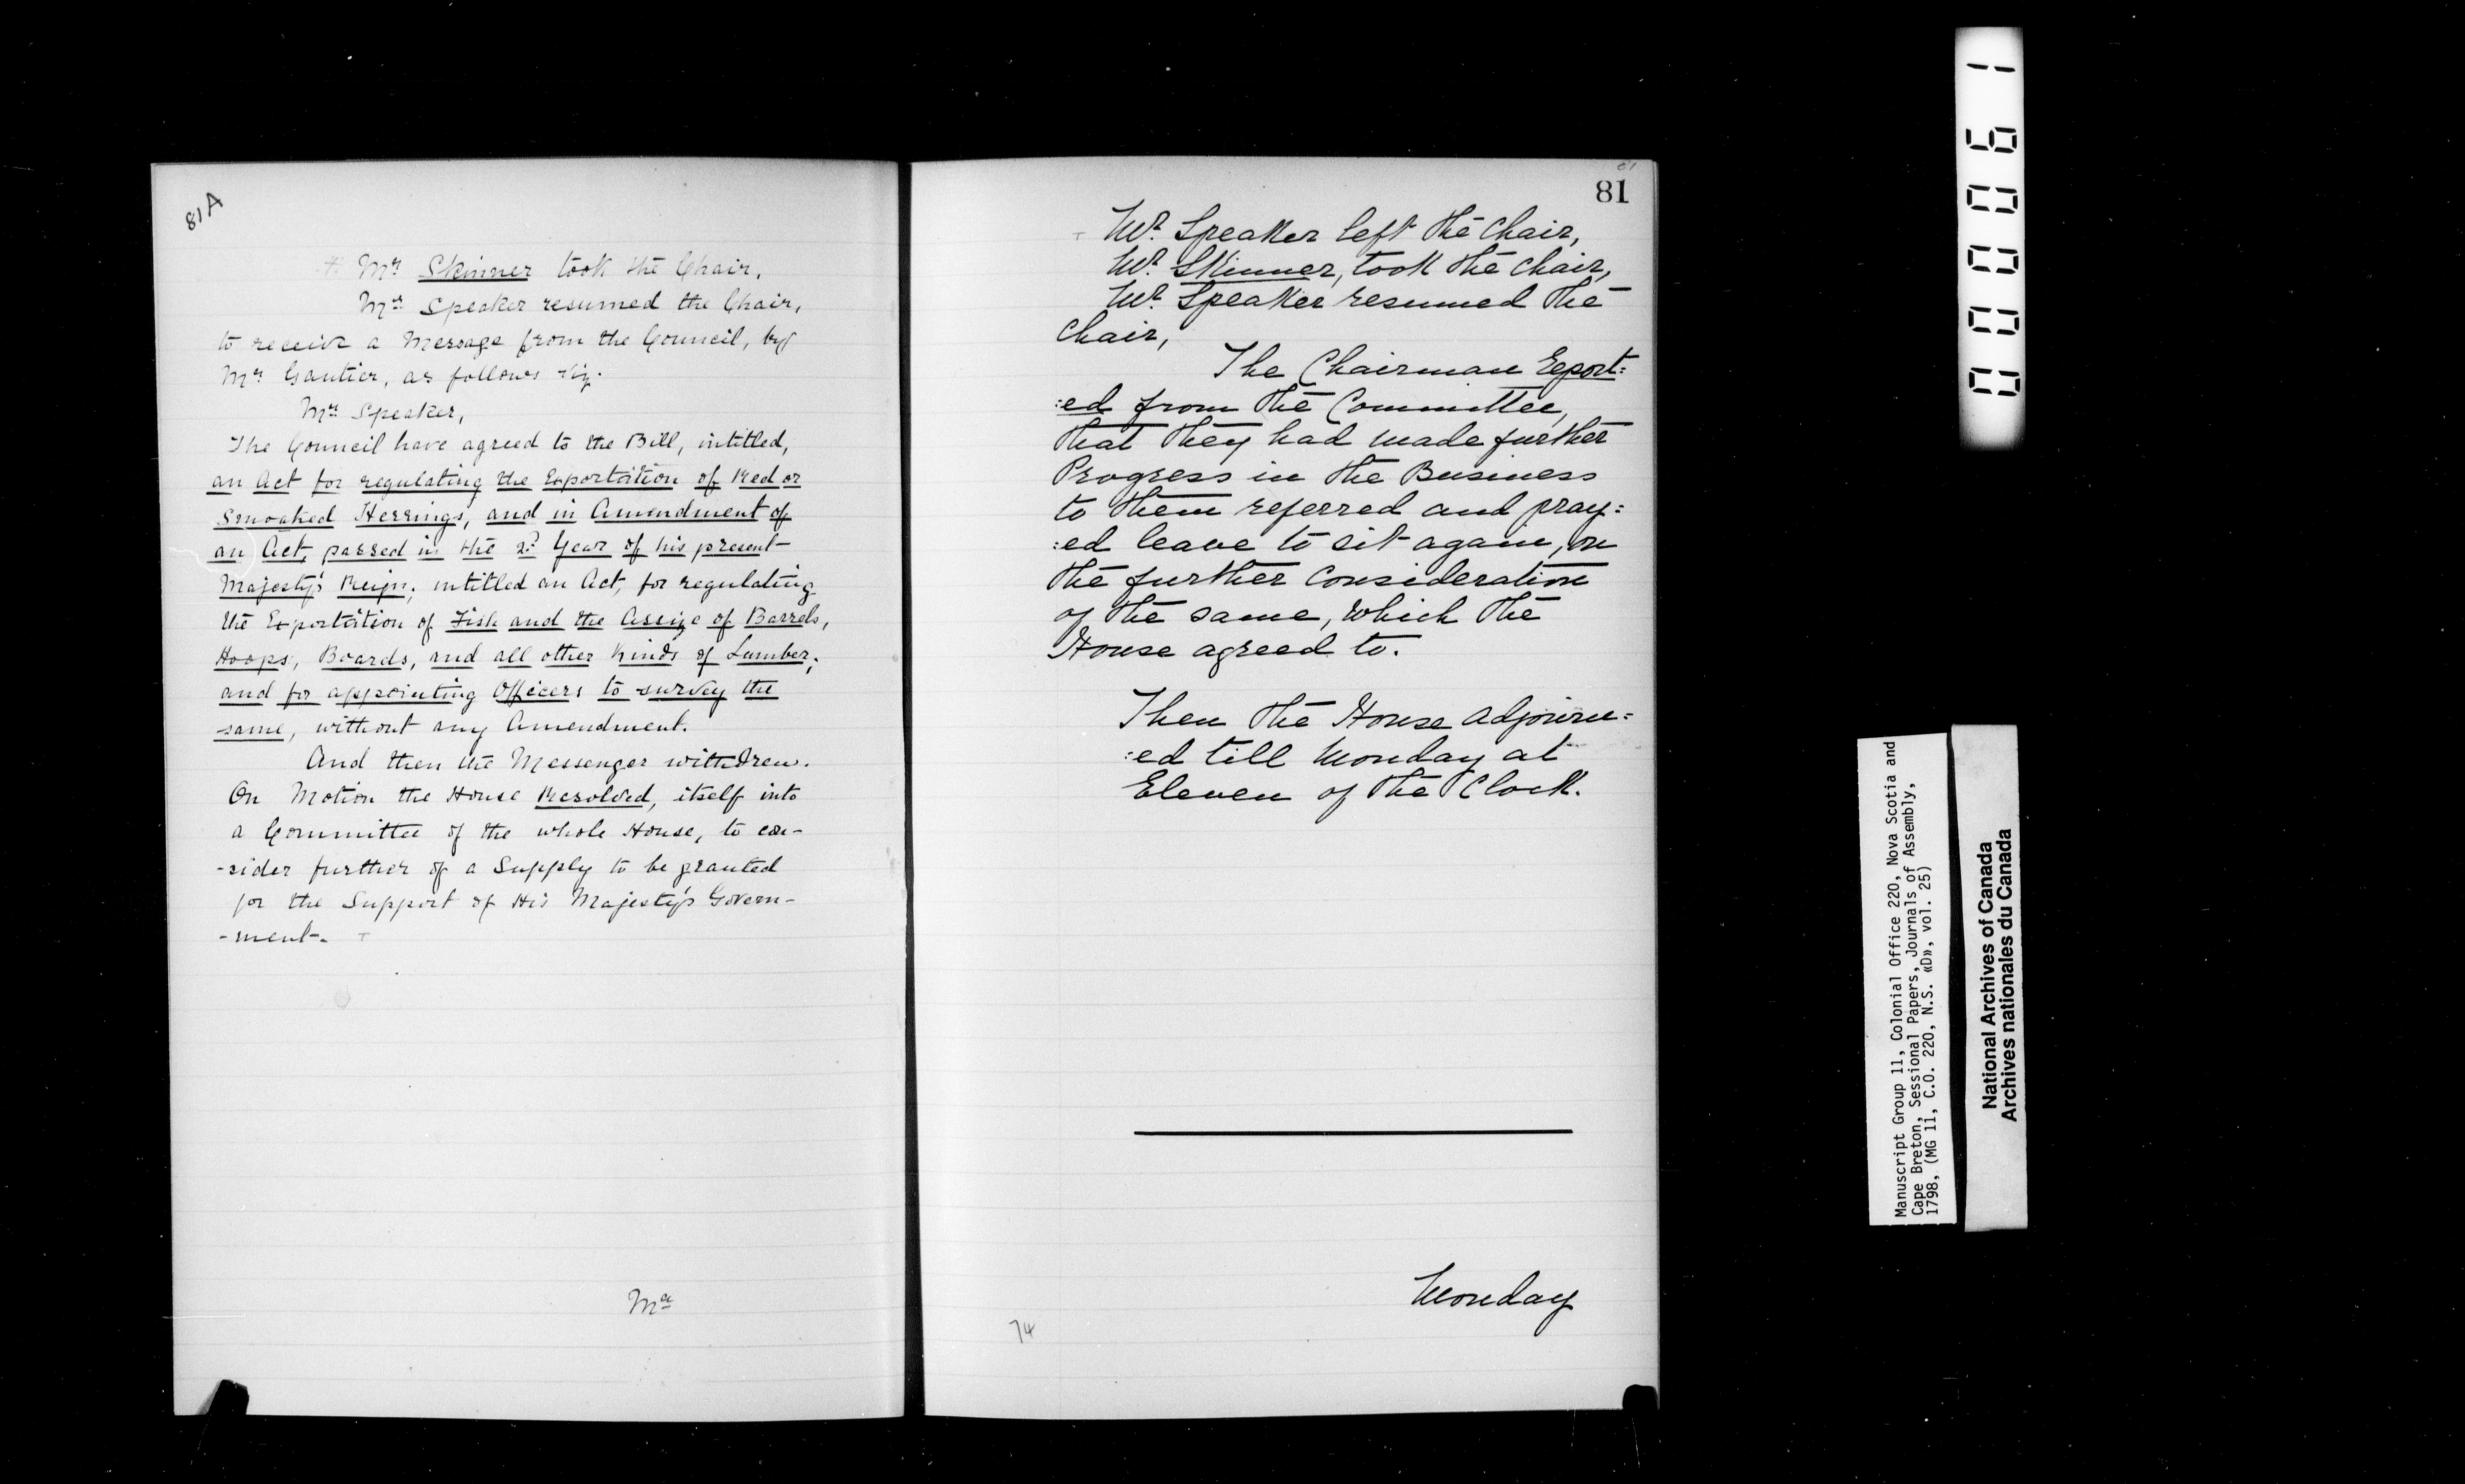 81A
Mr Skinner took the Chair,
Mr Speaker resumed the Chair,
to receive a Message from the Council, by
Mr Gautier, as follows viz.
Mr Speaker,
The Council have agreed to the Bill, intitled,
an Act for regulating the Exportation of Red or
Smoaked Herrings, and in Amendment of
an Act, passed in the 2d Year of his present
Majesty's Reign, intitled an Act, for regulating
the Exportation of Fish and the Assize of Barrels,
Hoops, Boards, and all other kinds of Lumber;
and for appointing Officers to survey the
same, without any Amendment.
And then the Messenger withdrew.
On Motion the House Resolved, itself into
a Committee of the whole House, to con-
-sider further of a Supply to be granted
for the Support of His Majesty's Govern-
-ment-. T
Mr
81
81
T Mr. Speaker left the Chair,
Mr. Skinner, took the Chair,
Mr. Speaker resumed the
Chair,
The Chairman Report:
:ed from the Committee,
that they had made further
Progress in the Business
to them referred and pray:
:ed leave to sit again, on
the further Consideration
of the same, which the
House agreed to.
Then the House adjourn:
:ed till Monday at
Eleven of the Clock.
Monday
74
000061
Manuscript Group 11, Colonial Office 220, Nova Scotia and
Cape Breton, Sessional Papers, Journals of Assembly,
1798, (MG 11, C.O. 220, N.S. «D», vol. 25)
National Archives of Canada
Archives nationales du Canada